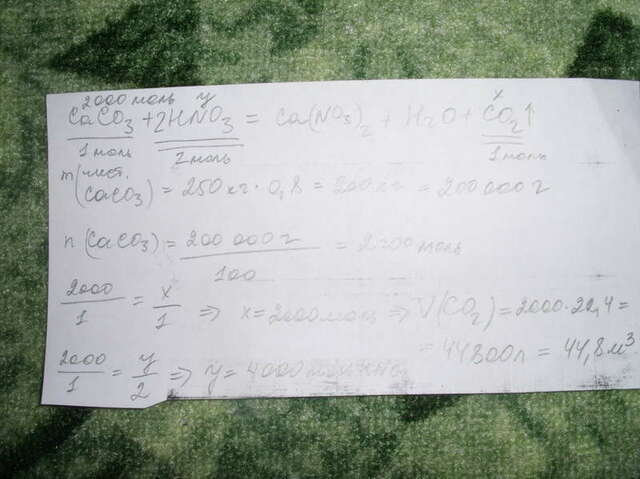 2000 моль y x
CaCO3 + 2HNO3 = Ca(NO3)2 + H2O + CO2↑
1 моль 2 моль 1 моль
m чист. (CaCO3) = 250 кг · 0,8 = 200 кг = 200 000 г
n (CaCO3) = 200 000 г / 100 = 2000 моль
2000/1 = x/1 ⇒ x = 2000 моль ⇒ V(CO2) = 2000·22,4 =
= 44800 л = 44,8 м³
2000/1 = y/2 ⇒ y = 4000 моль